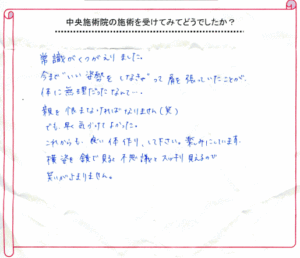 中央施術院の施術を受けてみてどうでしたか？
常識がくつがえりました。
今まで"いい姿勢をしなきゃ"って肩を張っていたことが、
体に無理だったなんて…
親を恨まなければなりません(笑)
でも、早く気づけてよかった。
これからも、良い体作り、して下さい。楽しみにしています。
横姿を鏡で見ると不思議とスッキリ見えるので
笑いが止まりません。